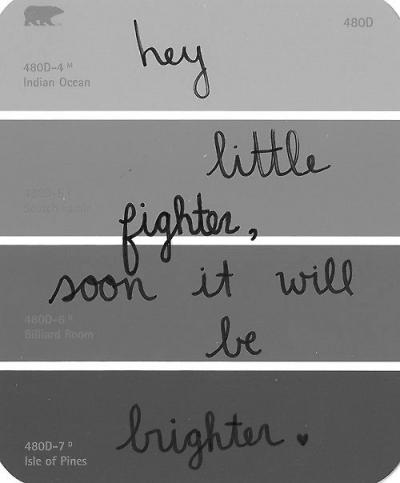 480D
hey
480D-4 M
Indian Ocean
little
480D-5
Scotch
fighter,
soon it will
480D-6
Billiard Room
be
brighter. ♥
480D-7 D
Isle of Pines